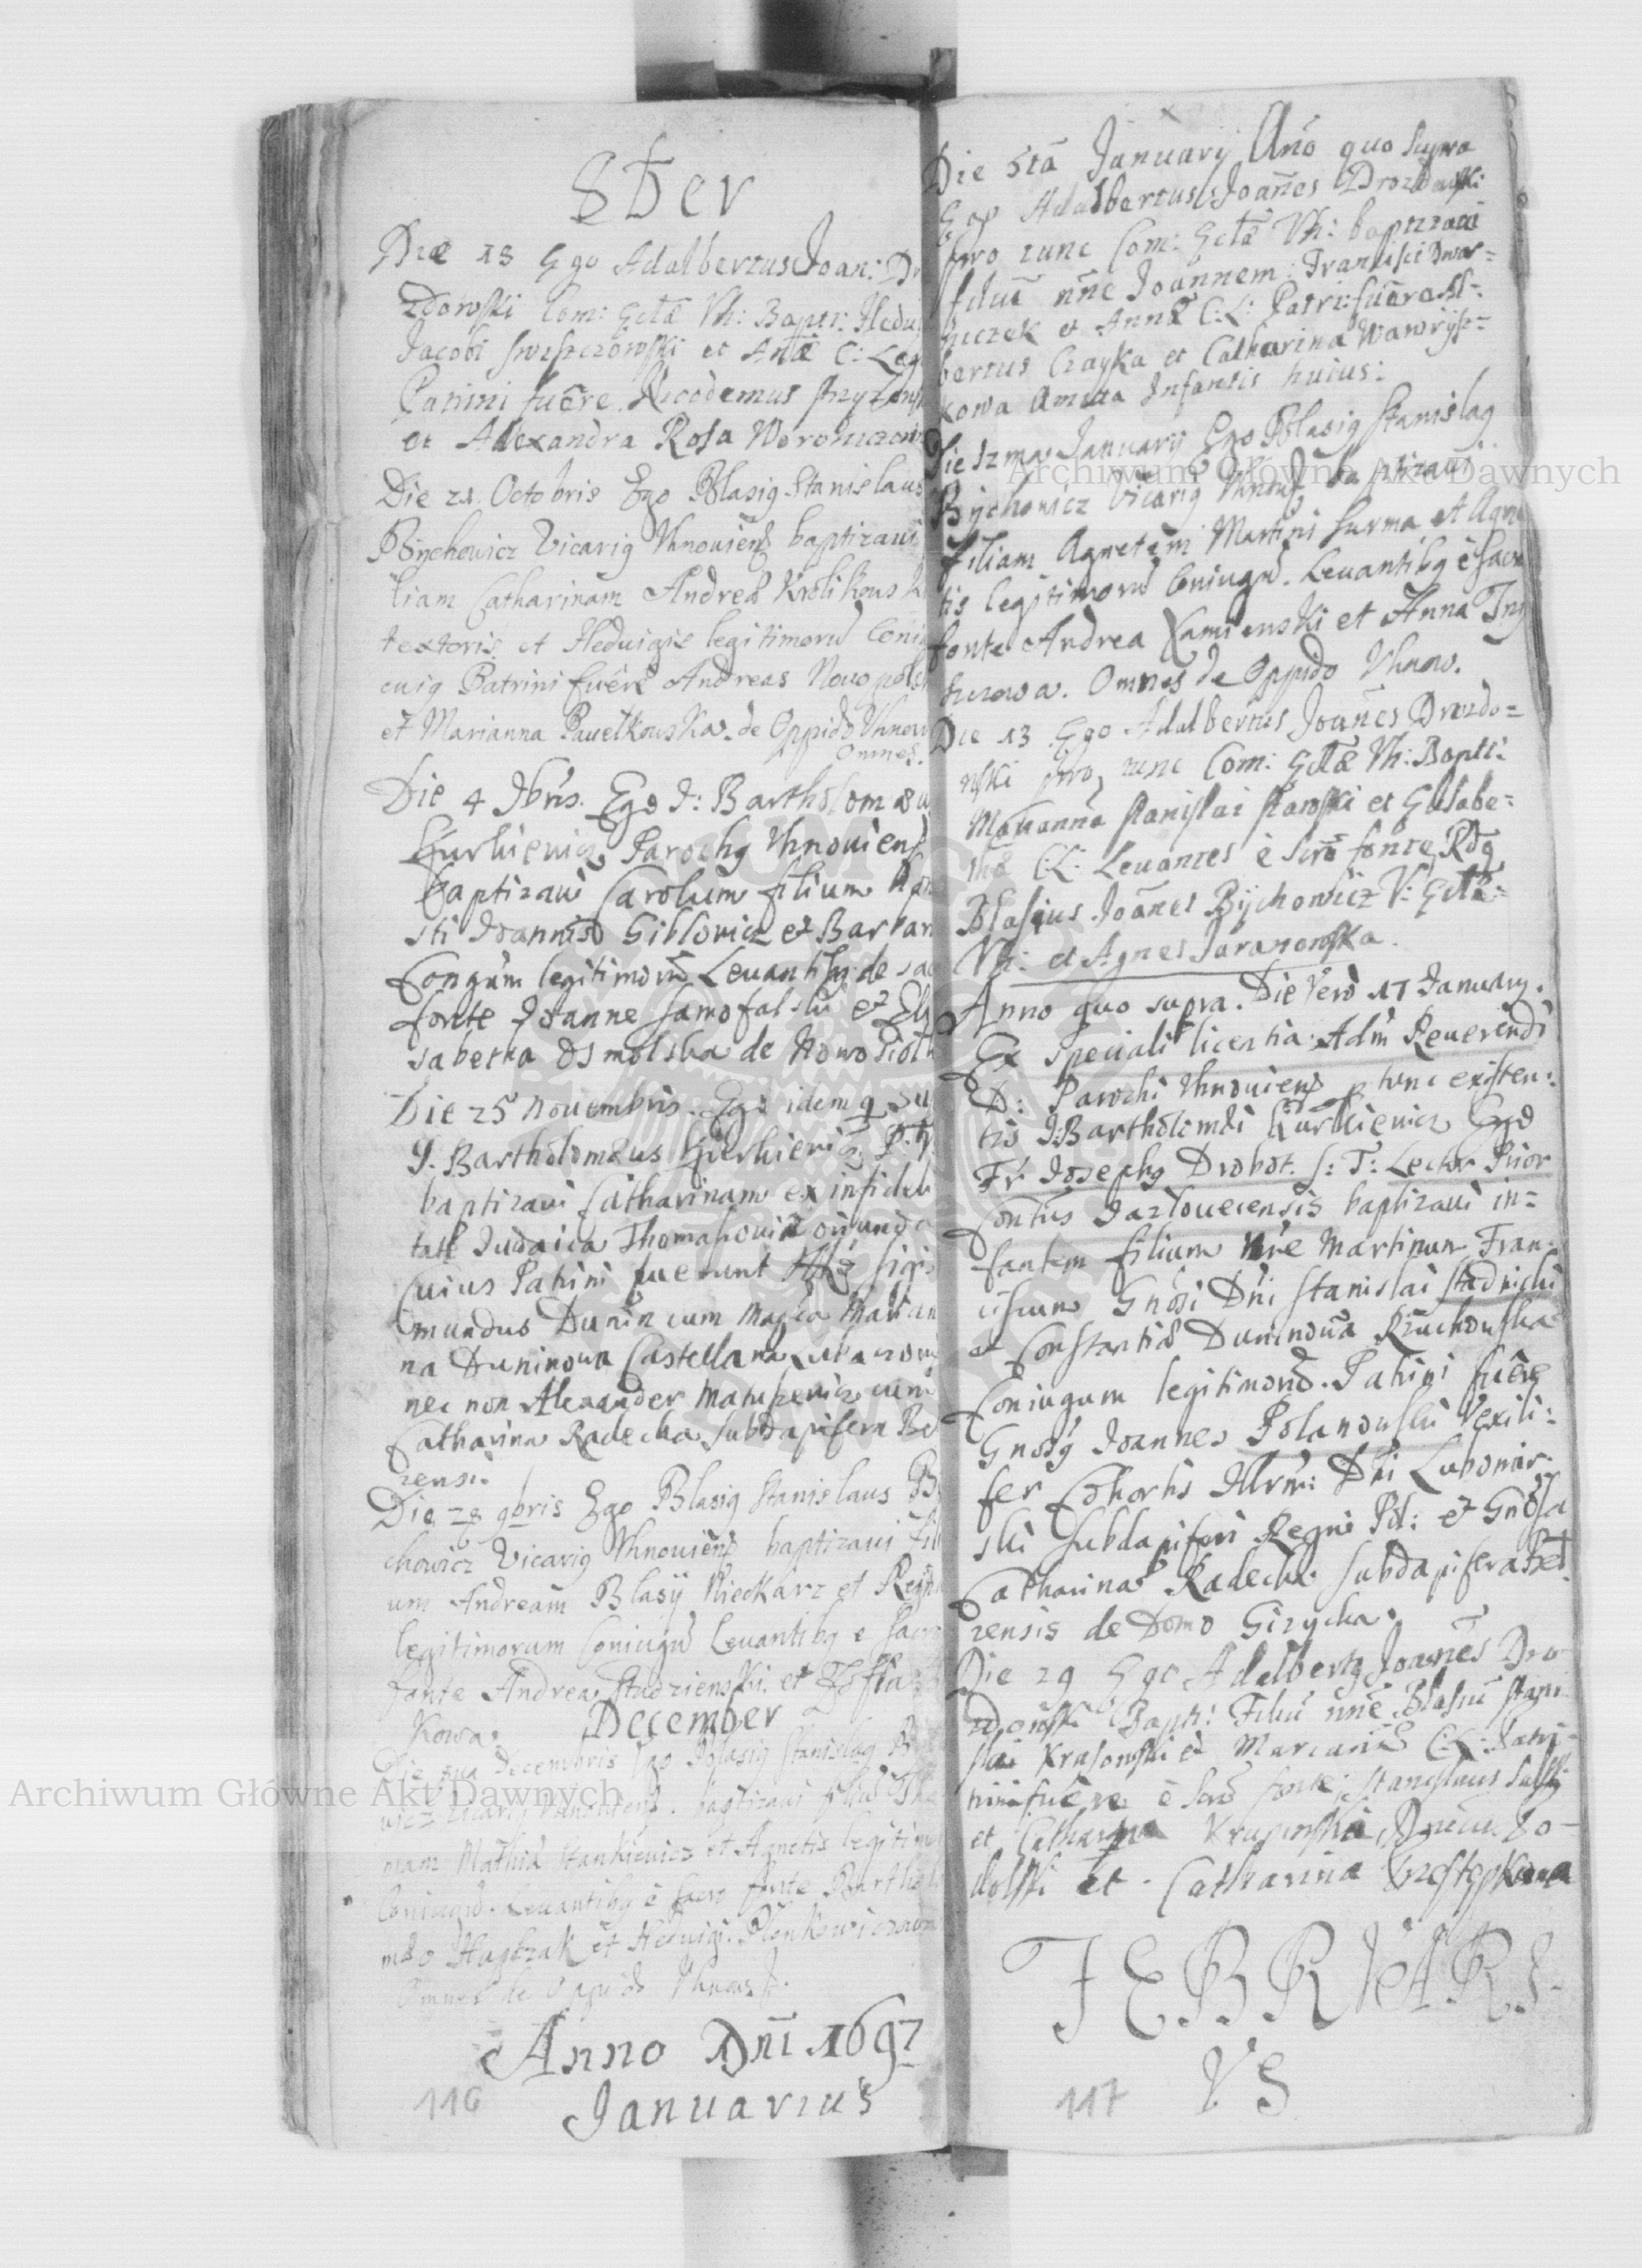 8ber
Die 18 Ego Adalbertus Joan: Dr
zdowski Com: Ecclã Vh: Bapt: Hedui
Jacobi et Anæ C: Leg
Patrini fuêre Nicodemus
et Alexandra Rosa
Die 21 Octobris Ego Blasig Stanislaus
Bychowicz Vicarig Vhnouiens baptizaui
liam Catharinam Andreæ Krolikows
textoris et Heduigis legitimorũ Coniu
cuig Patrini fuêre Andreas Nowopols
et Marianna Pawełkowska de Oppido Vhnow
omnes.
Die 4 9bris. Ego J: Bartholomæu
Kurkiewicz Parochg Vhnouiens
baptizaui Carolum filium
sti Joannis Giblowicz et Barbar
Congum legitimorũ Leuantibg de sac
fonte Joanne Samofalski et Ely
sabetha Osmolska de Nowosiołk
Die 25 Nouembris. Ego idem q su
J. Bartholomæus Kurkiewicz P. V.
baptizaui Catharinam ex infideli
tate Judaica Thomasouiæ oriunda
Cuius Patrini fuerunt Sigis
mundus Dunin cum Magca Marian
na Duninowa Castellana
nec non Alexander Matuszewicz cum
Catharina Radecka Subdapifera Be
zensi.
Die 28 9bris Ego Blasig Stanislaus B
chowicz Vicarig Vhnouiens baptizaui fili
um Andream Blasij Nieckarz et Regi
legitimorum Coniugũ Leuantibg e sacro
fonte Andrea Studzienski et Zofia
kowa.
December
Die Decembris Ego Blasig Stanislag B
wicz Vicarig Vhnouiens. baptizaui filiũ Tho
mam Mathiæ Stankiewicz et Agnetis legitimo
Coniugũ. Leuantibg è sacro fonte Bartholo
mæo et Heduigi.
Omnes de Oppido Vhnow.
Anno Dñi 1697
Januarius
116
Die 5tã Januarij Año quo supra
Ego Adalbertus Joañes Drozdowski
pro tunc Com: Ecclã Vh: baptizaui
filiũ nñe Joannem: Francisci Dwor=
niczek et Annæ C: L: Patri: fuêre Adal=
bertus Czayka et Catharina Wawrysz=
kowa Amita Infantis huius:
Die 12ma Januarij Ego Blasig Stanislag
Bychowicz Vicarig Vhnous baptizaui
filiam Agnetem Martini Surma et Agne
tis legitimorũ Coniugũ. Leuantibg è sacro
fonte Andrea Kamienski et Anna
. Omnes de Oppido Vhnow.
Die 13 Ego Adalbertus Joañes Drozdo=
wski pro tunc Com: Ecclæ Vh: Bapti:
Mariannã Stanislai et Elisabe=
thæ C: L: Leuantes è scrõ fonte Rdg
Blasius Joañes Bychowicz V: Ecclæ
Vh: et Agnes
Anno quo supra. Die Vero 17 January.
Ex speciali licentia Adm Reuerendi
D: Parochi Vhnouiens p tunc existen:
tis J: Bartholomæi Kurkiewicz Ego
Fr Josephg Drobot. S: T: Lector Prior
Contus Jazlouecensis baptizaui in=
fantem filium nñe Martinum Fran:
ciscum Gñosi Dñi Stanislai Stadnicki
et Constantiæ Duninowa Rzuchowska
Coniugum legitimorũ. Patrini fuêre
Gnosg Joannes Polanowski Vexili:
fer Cohortis Illrm: Dñi Lubomir:
ski Subdapiferi Regni Pol: et Gñosa
Catharina Radecka Subdapifera Beł
zensis de Domo Giżycka.
Die 29 Ego Adalbertg Joañes Dro
zdowski Bapti: Filiũ nñe Blasiũ Stani
slai Krasowski et Mariannæ C: L: Patri
trini fuêre è scrõ fonte; Stanislaus
et Catharina
et Catharina
FEBRUARI
VS
117